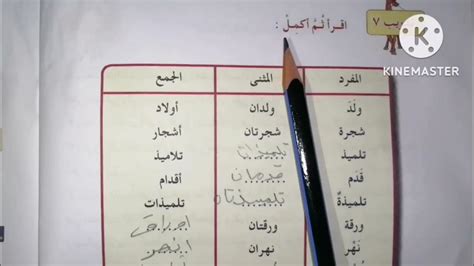 تدريب ٧
اقرأ ثُمَّ أكمِلْ :
KINEMASTER
المفرد المثنى الجمع
ولَد ولدان أولاد
شجرة شجرتان أشجار
تلميذ تلاميذ
قَدَم قدمان أقدام
تلميذةٌ تلميذتان تلميذات
ورقة ورقتان أوراق
نَهْر نهران